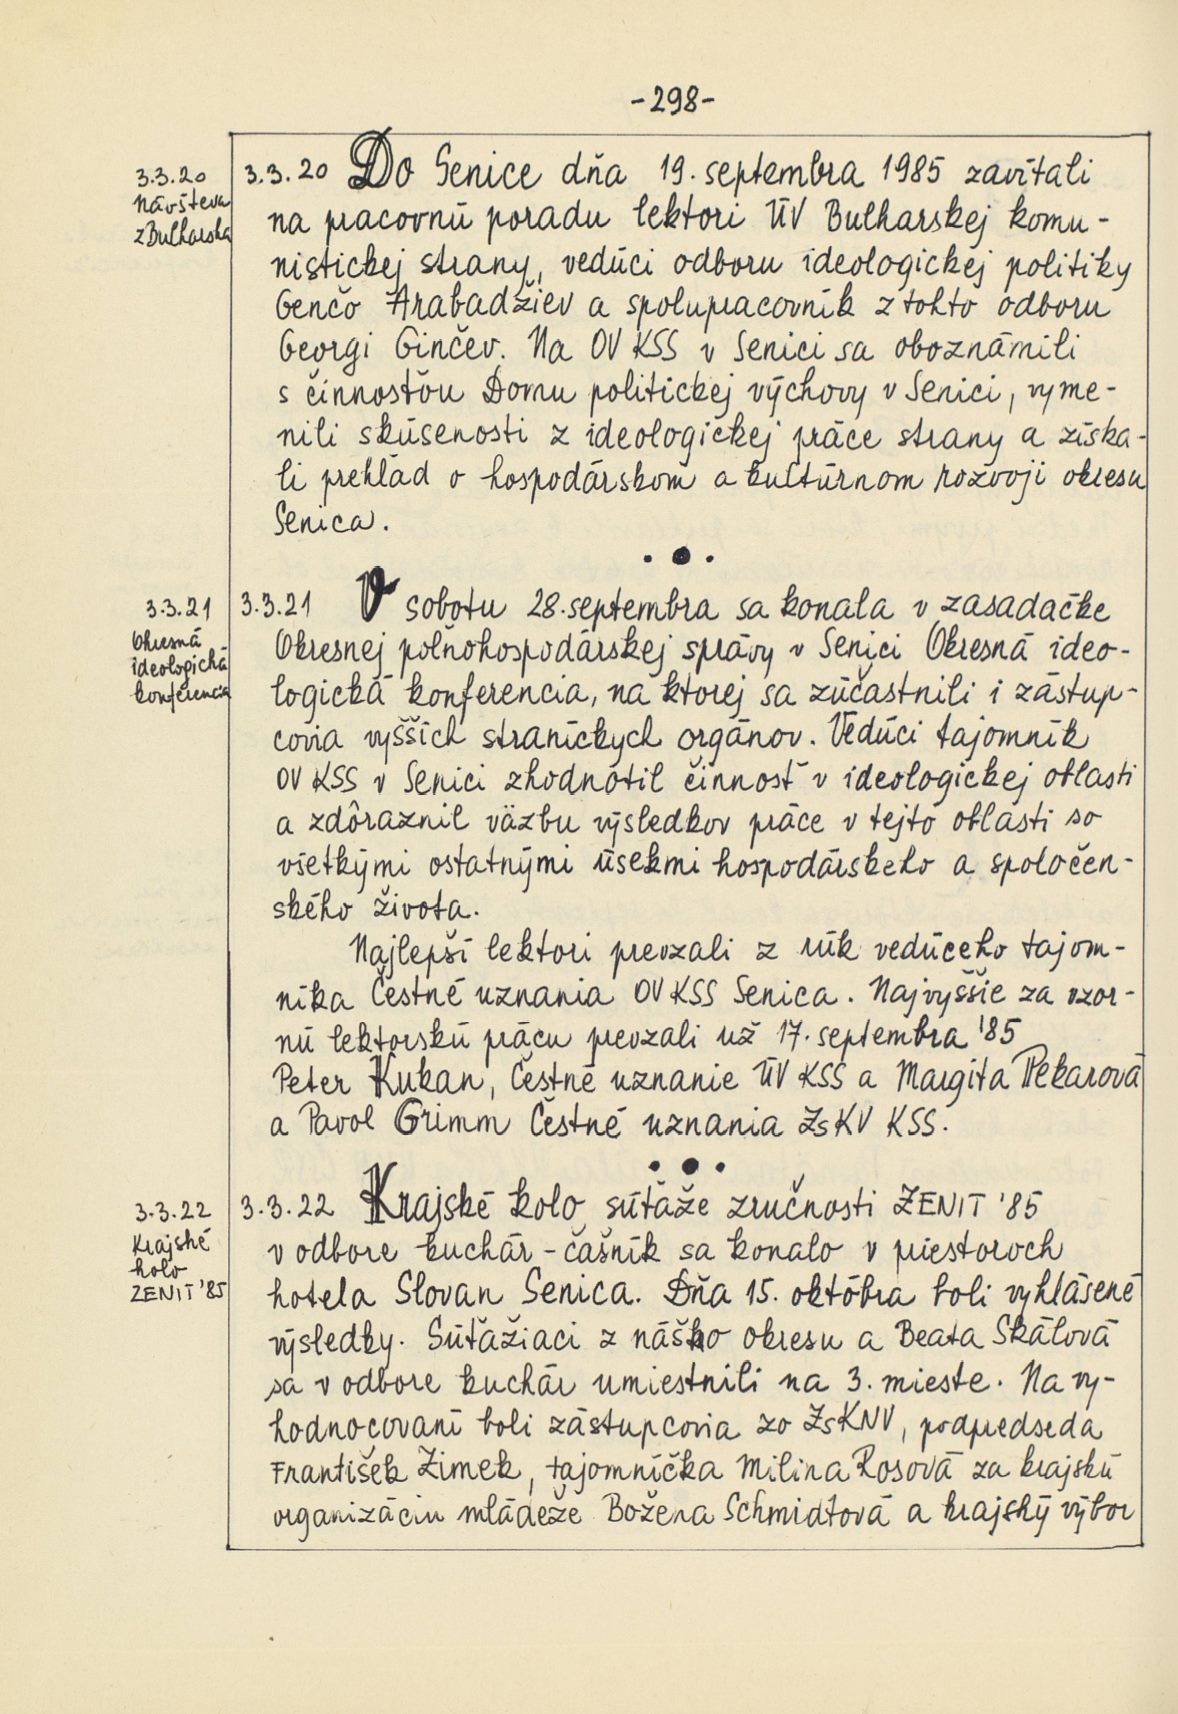 -298-
3.3.20
Návšteva
z Bulharska
3.3.20 Do Senice dňa 19. septembra 1985 zavítali
na pracovnú poradu lektori ÚV Bulharskej komu-
nistickej strany, vedúci odboru ideologickej politiky
Genčo Arabadžiev a spolupracovník z tohto odboru
Georgi Ginčev. Na OV KSS v Senici sa oboznámili
s činnosťou Domu politickej výchovy v Senici, vyme-
nili skúsenosti z ideologickej práce strany a získa-
li prehľad o hospodárskom a kultúrnom rozvoji okresu
Senica.
3.3.21
Okresná
ideologická
konferencia
3.3.21 V sobotu 28. septembra sa konala v zasadačke
Okresnej poľnohospodárskej správy v Senici Okresná ideo-
logická konferencia, na ktorej sa zúčastnili i zástup-
covia vyšších straníckych orgánov. Vedúci tajomník
OV KSS v Senici zhodnotil činnosť v ideologickej oblasti
a zdôraznil väzbu výsledkov práce v tejto oblasti so
všetkými ostatnými úsekmi hospodárskeho a spoločen-
ského života.
Najlepší lektori prevzali z rúk vedúceho tajom-
níka Čestné uznania OV KSS Senica. Najvyššie za vzor-
nú lektorskú prácu prevzali už 17. septembra '85
Peter Kukan, Čestné uznanie ÚV KSS a Margita Pekarová
a Pavol Grimm Čestné uznania ZsKV KSS.
3.3.22
Krajské
kolo
ZENIT '85
3.3.22 Krajské kolo súťaže zručnosti ZENIT '85
v odbore kuchár - čašník sa konalo v priestoroch
hotela Slovan Senica. Dňa 15. októbra boli vyhlásené
výsledky. Súťažiaci z nášho okresu a Beata Skálová
sa v odbore kuchár umiestnili na 3. mieste. Na vy-
hodnocovaní boli zástupcovia zo ZsKNV, podpredseda
František Zimek, tajomníčka Milina Rosová za krajskú
organizáciu mládeže Božena Schmidtová a krajský výbor